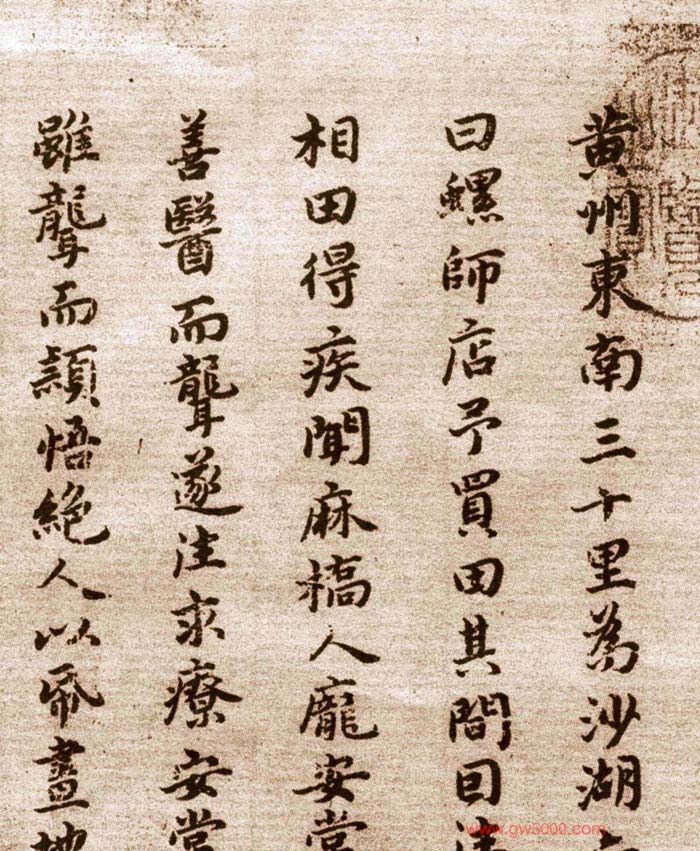 黄州東南三十里為沙湖
曰螺師店予買田其間因往
相田得疾聞麻橋人龐安常
善醫而聾遂往求療安常
雖聾而穎悟絶人以帋畫地
www.gw5000.com